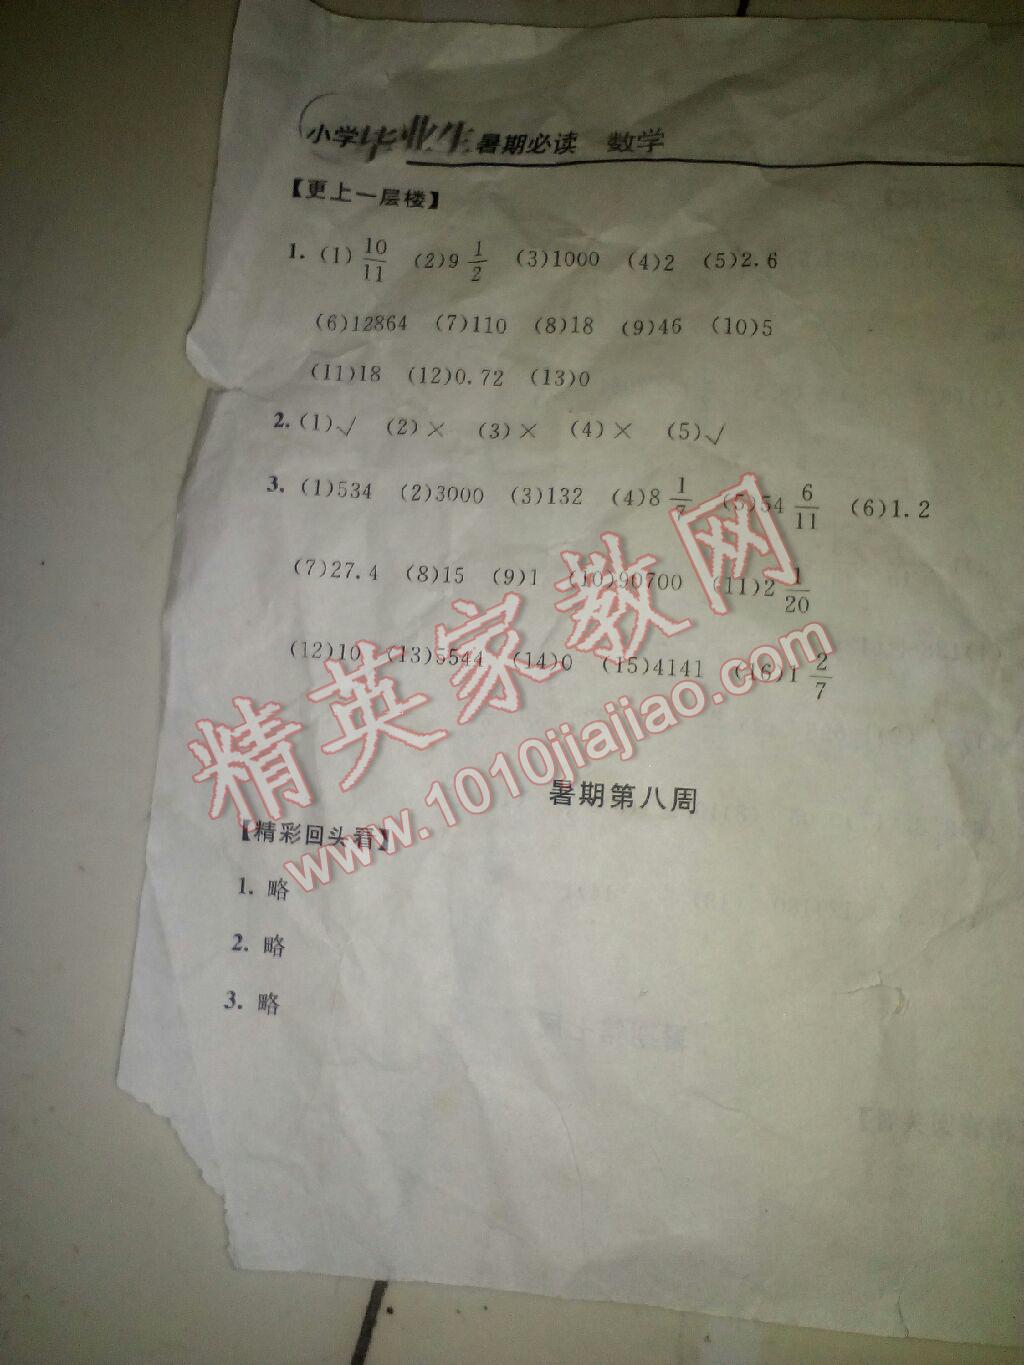 小学毕业生暑期必读 数学
【更上一层楼】
1. (1) 10/11 (2)9 1/2 (3)1000 (4)2 (5)2.6
(6)12864 (7)110 (8)18 (9)46 (10)5
(11)18 (12)0.72 (13)0
2. (1)√ (2)× (3)× (4)× (5)√
3. (1)534 (2)3000 (3)132 (4)8 1/7 (5)54 6/11 (6)1.2
(7)27.4 (8)15 (9)1 (10)90700 (11)2 1/20
(12)10 (13)5544 (14)0 (15)4141 (16)1 2/7
精英家教网
www.1010jiajiao.com
暑期第八周
【精彩回头看】
1. 略
2. 略
3. 略